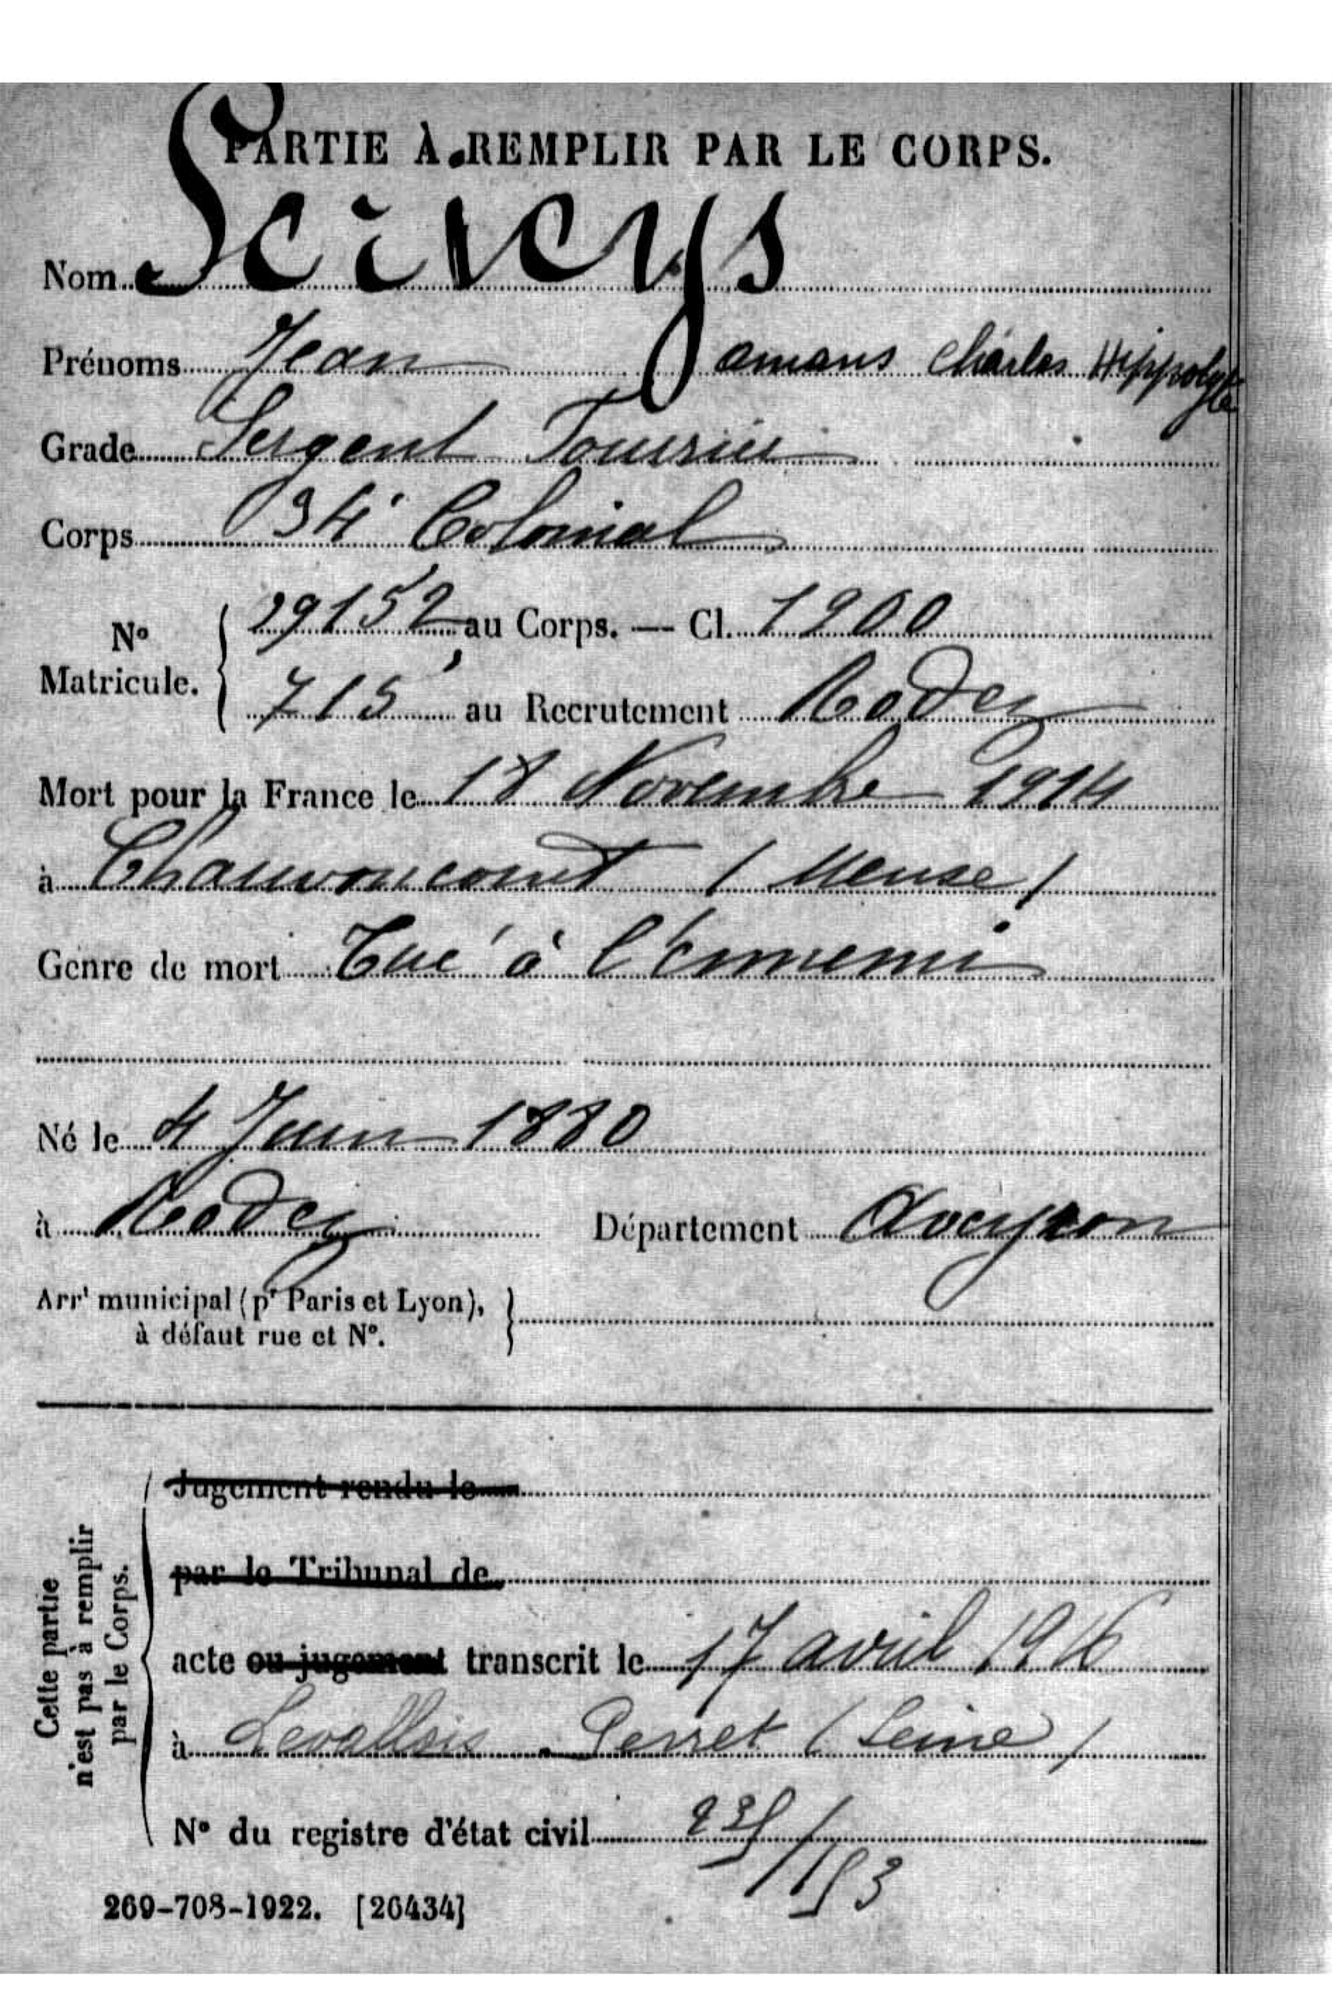 PARTIE À REMPLIR PAR LE CORPS.
Nom
Prénoms Jean Amans Charles Hippolyte
Grade Sergent Fourrier
Corps 34e Colonial
No Matricule. 29152 au Corps. — Cl. 1900
715 au Recrutement Rodez
Mort pour la France le 18 Novembre 1914
à Chauvoncourt (Meuse)
Genre de mort Tué à l'ennemi
Né le 4 Juin 1880
à Rodez Département Aveyron
Arrt municipal (pr Paris et Lyon),
à défaut rue et No.
Cette partie
n'est pas à remplir
par le Corps.
Jugement rendu le
par le Tribunal de
acte ou jugement transcrit le 17 avril 1916
à Levallois-Perret (Seine)
No du registre d'état civil
269-708-1922. [26434]